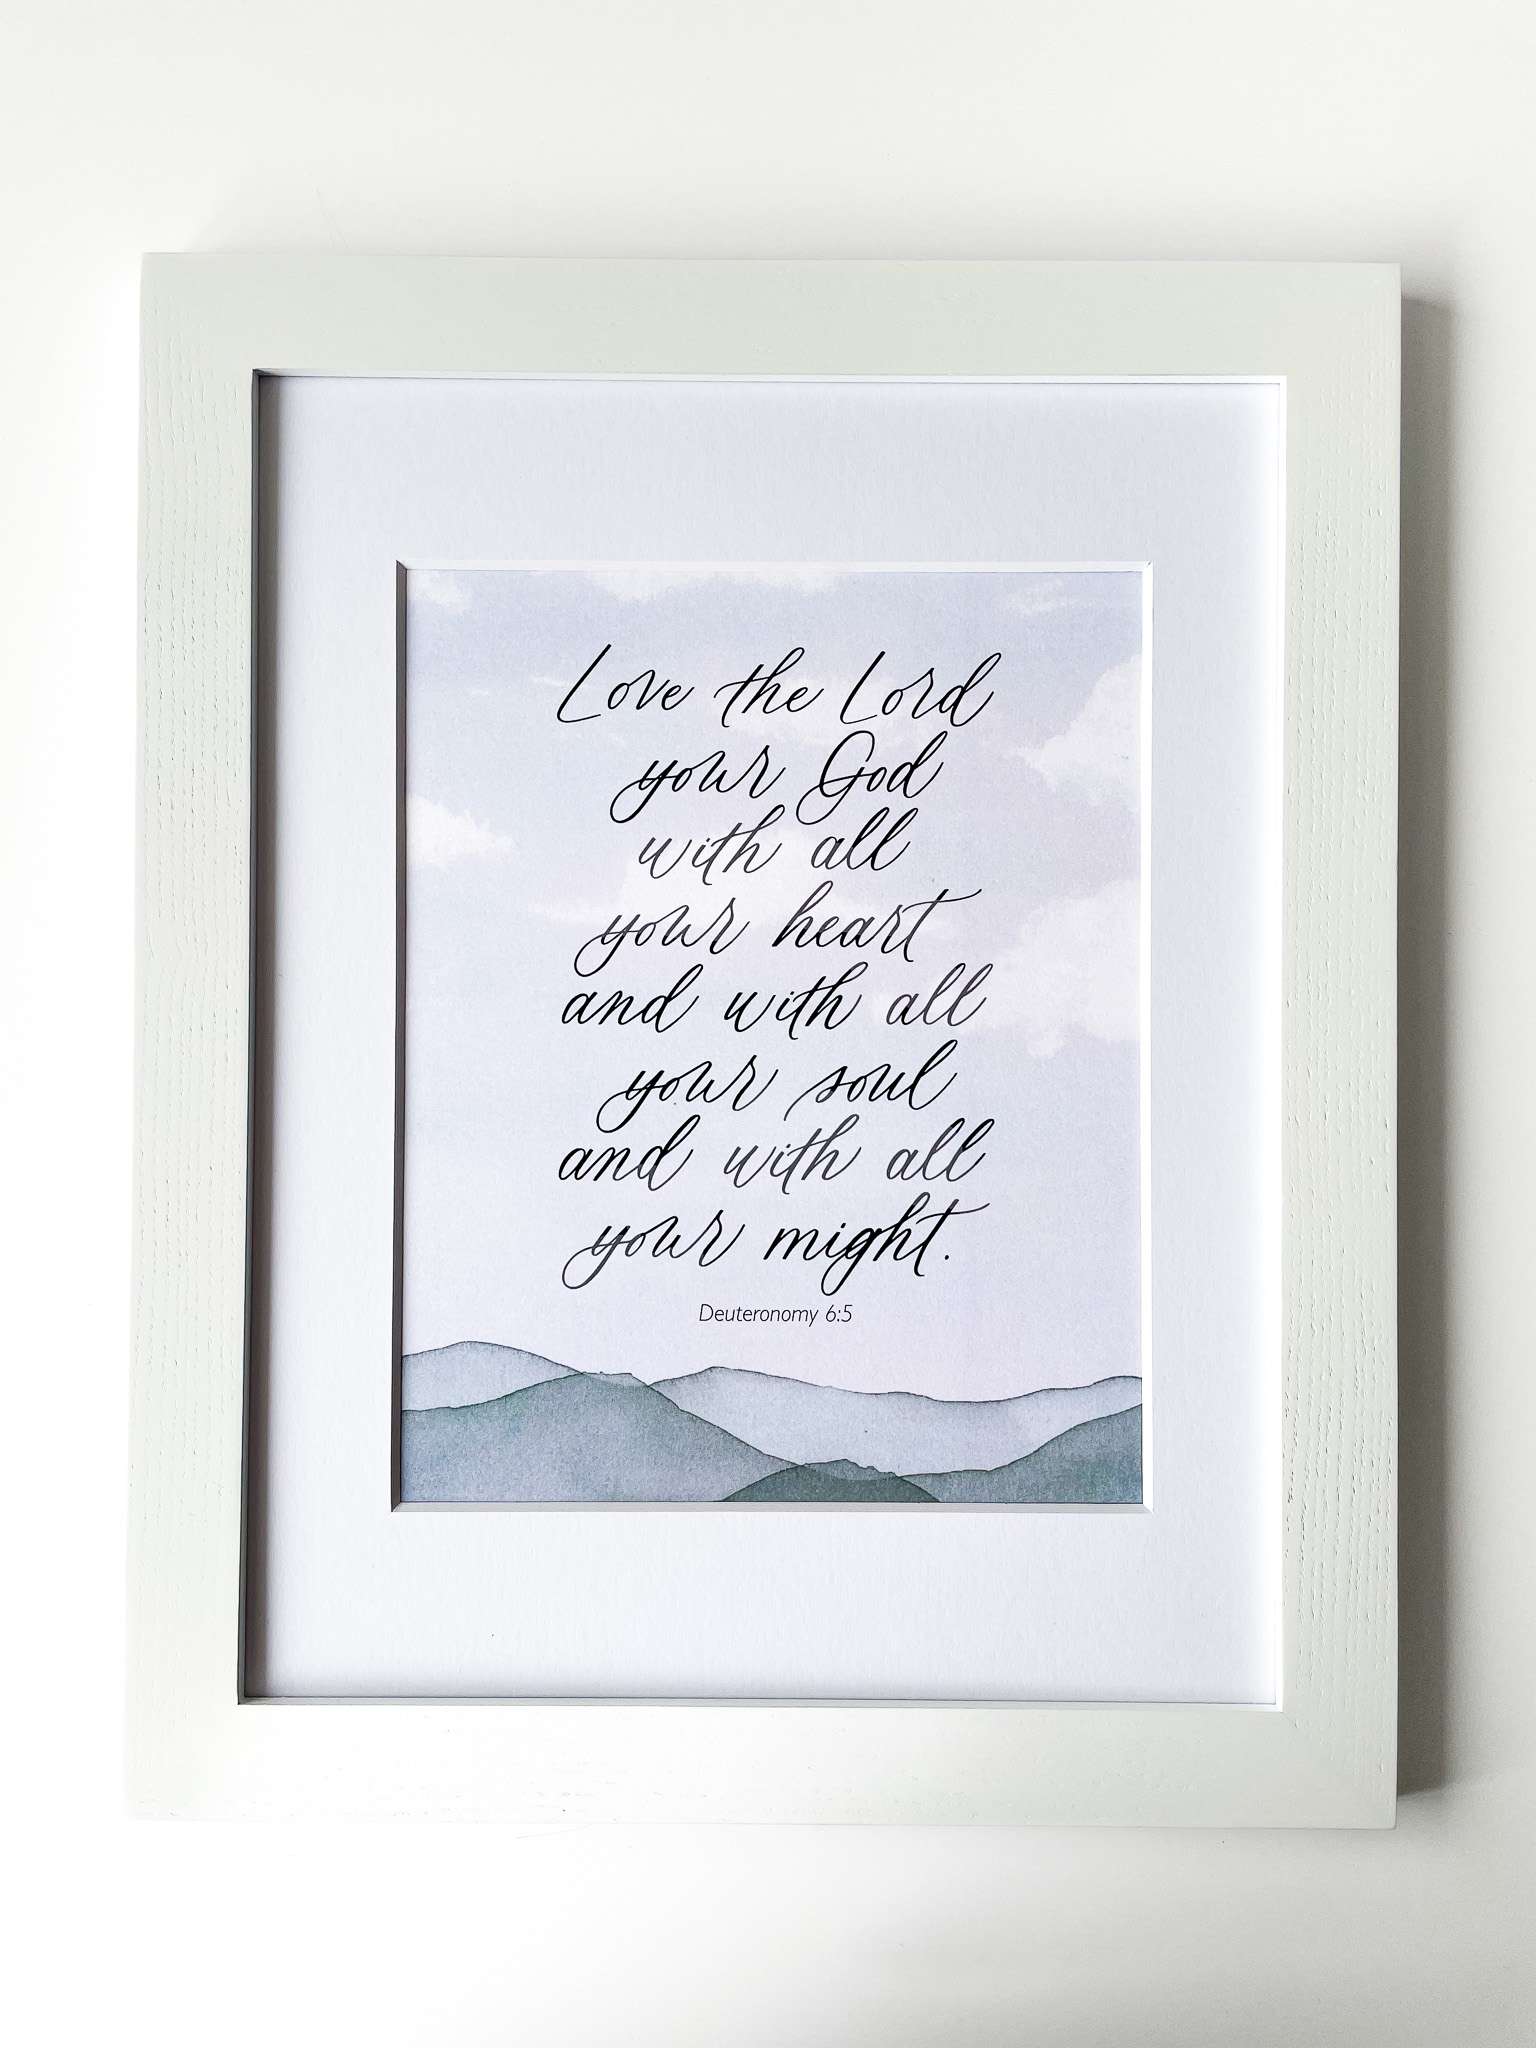 Love the Lord
your God
with all
your heart
and with all
your soul
and with all
your might.
Deuteronomy 6:5